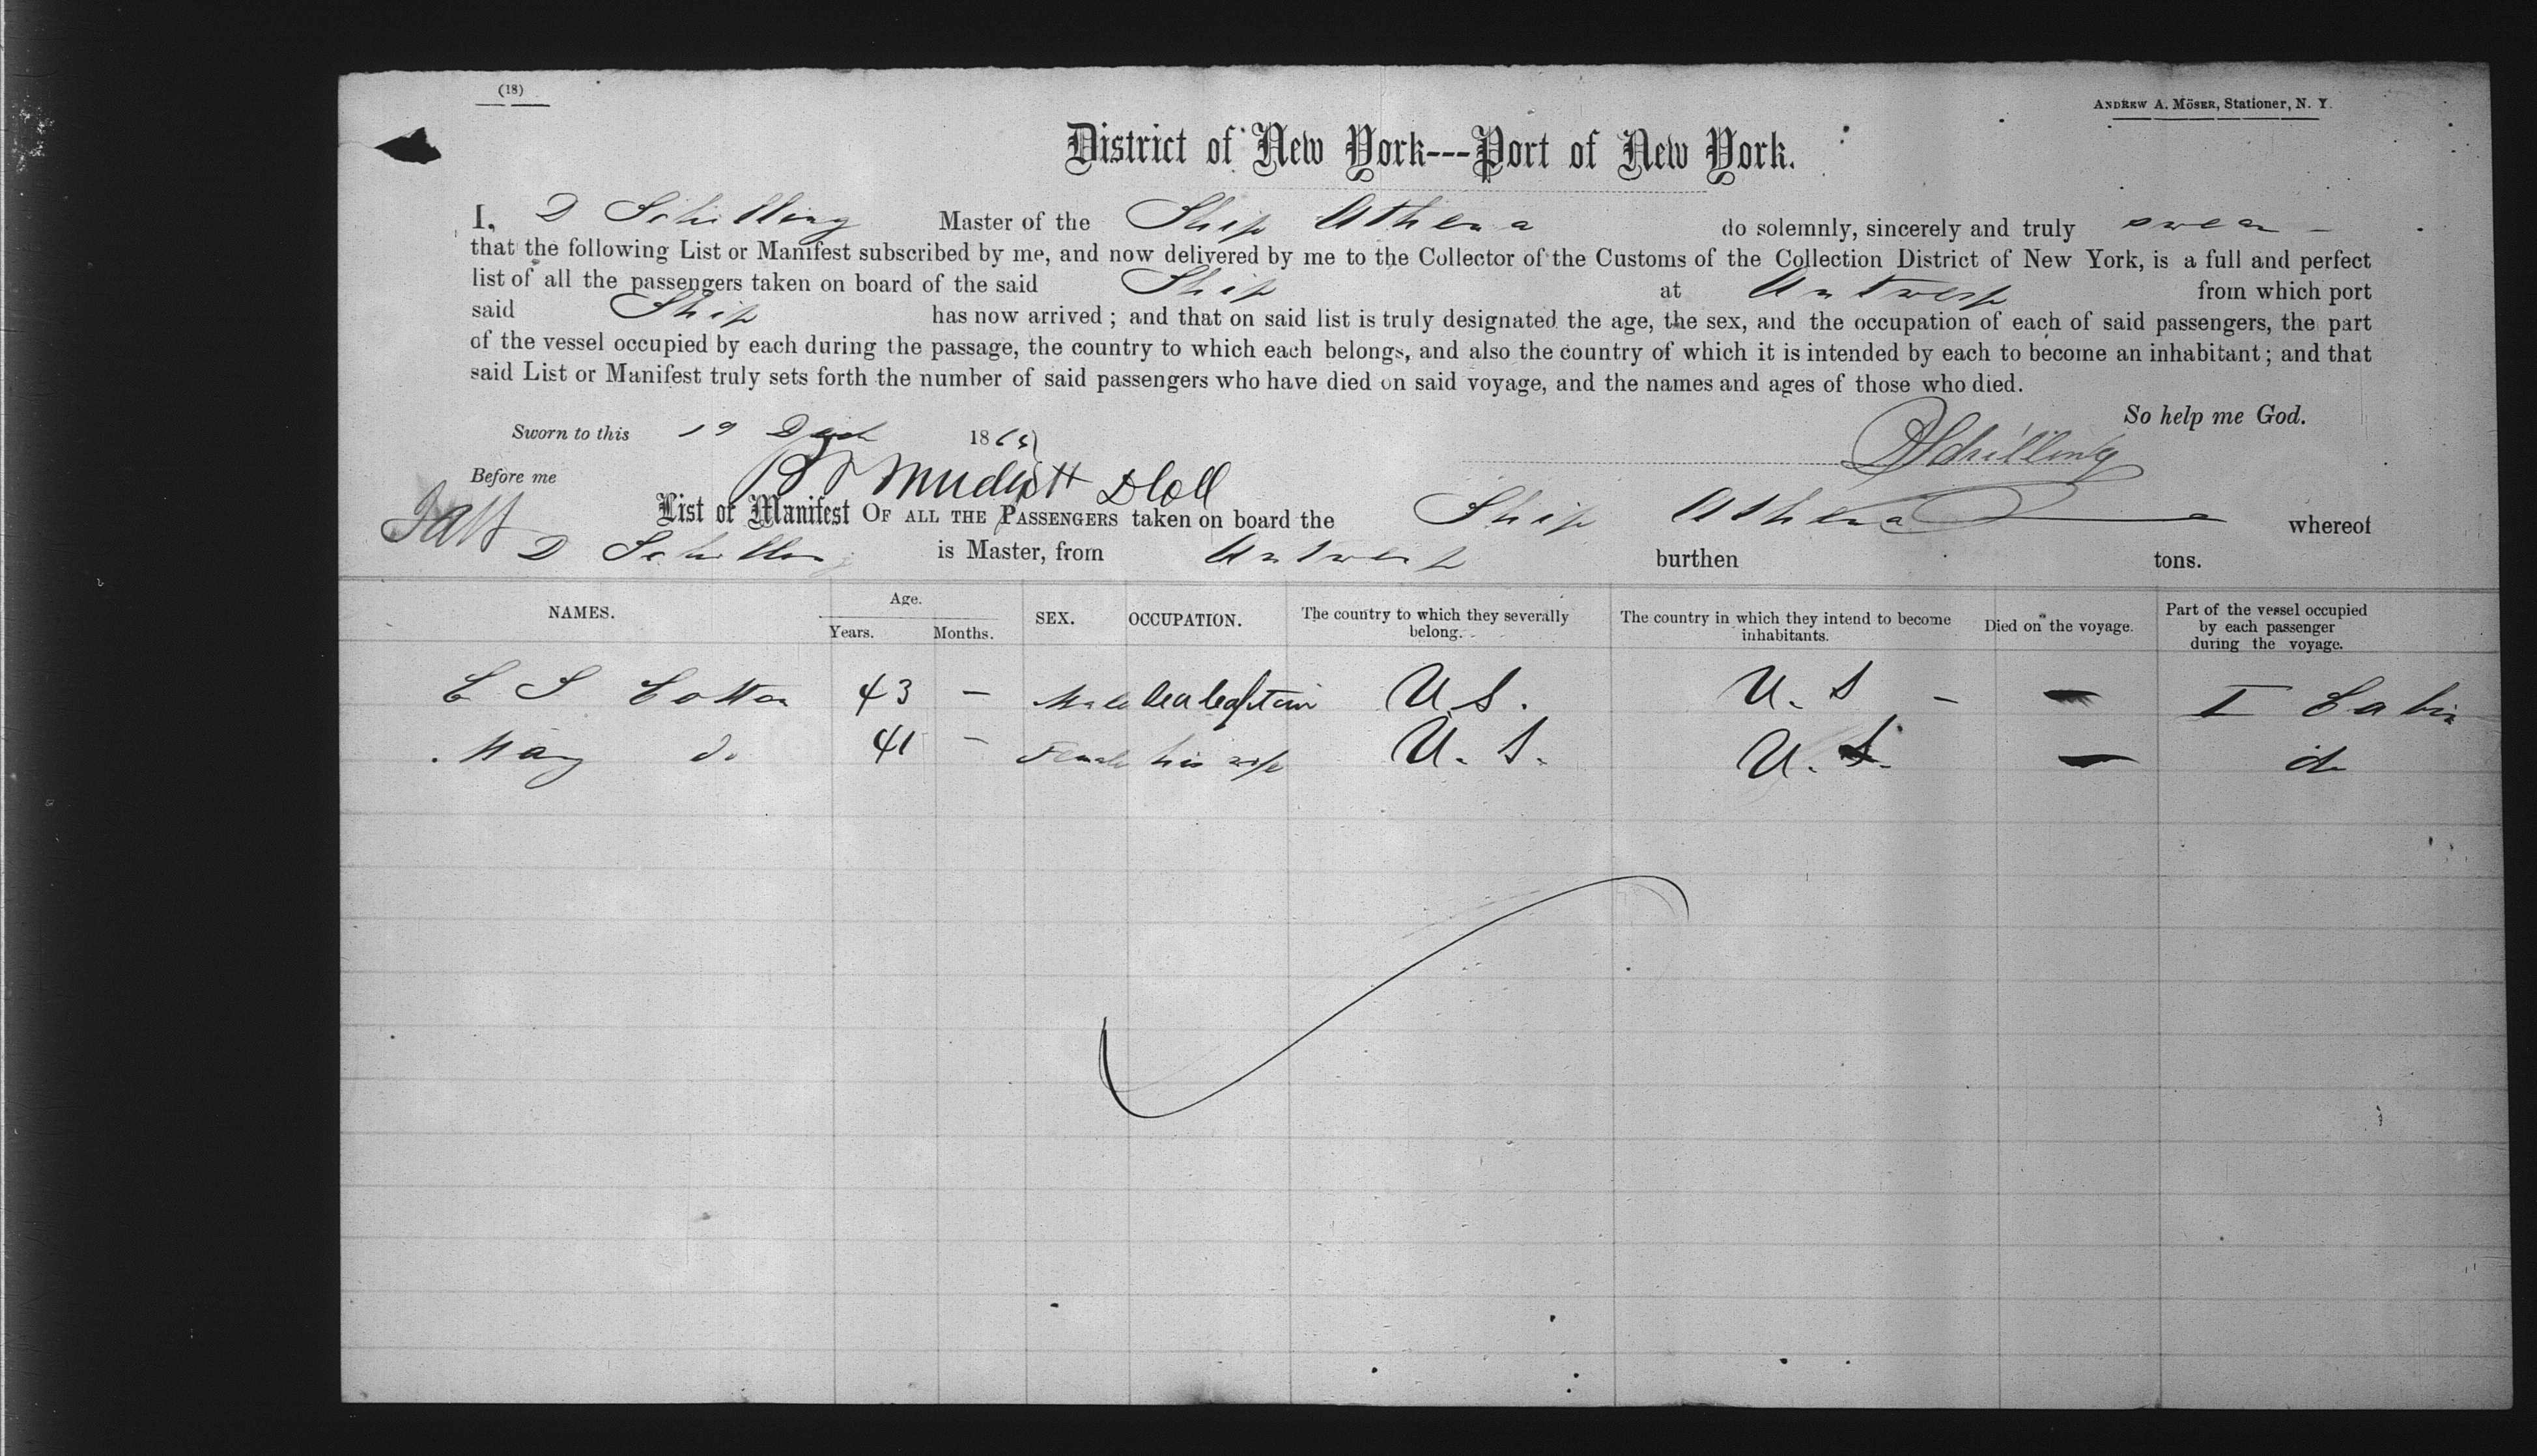 (18)
ANDREW A. MÖSER, Stationer, N. Y.
District of New York---Port of New York.
I, D Schilling Master of the Ship Athena do solemnly, sincerely and truly swear -
that the following List or Manifest subscribed by me, and now delivered by me to the Collector of the Customs of the Collection District of New York, is a full and perfect
list of all the passengers taken on board of the said Ship at Antwerp from which port
said Ship has now arrived; and that on said list is truly designated the age, the sex, and the occupation of each of said passengers, the part
of the vessel occupied by each during the passage, the country to which each belongs, and also the country of which it is intended by each to become an inhabitant; and that
said List or Manifest truly sets forth the number of said passengers who have died on said voyage, and the names and ages of those who died.
So help me God.
Sworn to this 19 186
DSchilling
Before me
List or Manifest OF ALL THE PASSENGERS taken on board the Ship Athena whereof
D Schilling is Master, from Antwerp burthen tons.
NAMES. Age. Years. Months. SEX. OCCUPATION. The country to which they severally belong. The country in which they intend to become inhabitants. Died on the voyage. Part of the vessel occupied by each passenger during the voyage.
C S Cotton 43 - Male Sea Captain U.S. U.S - - I Cabin
Mary do 41 - Female his wife U.S. U.S. - do